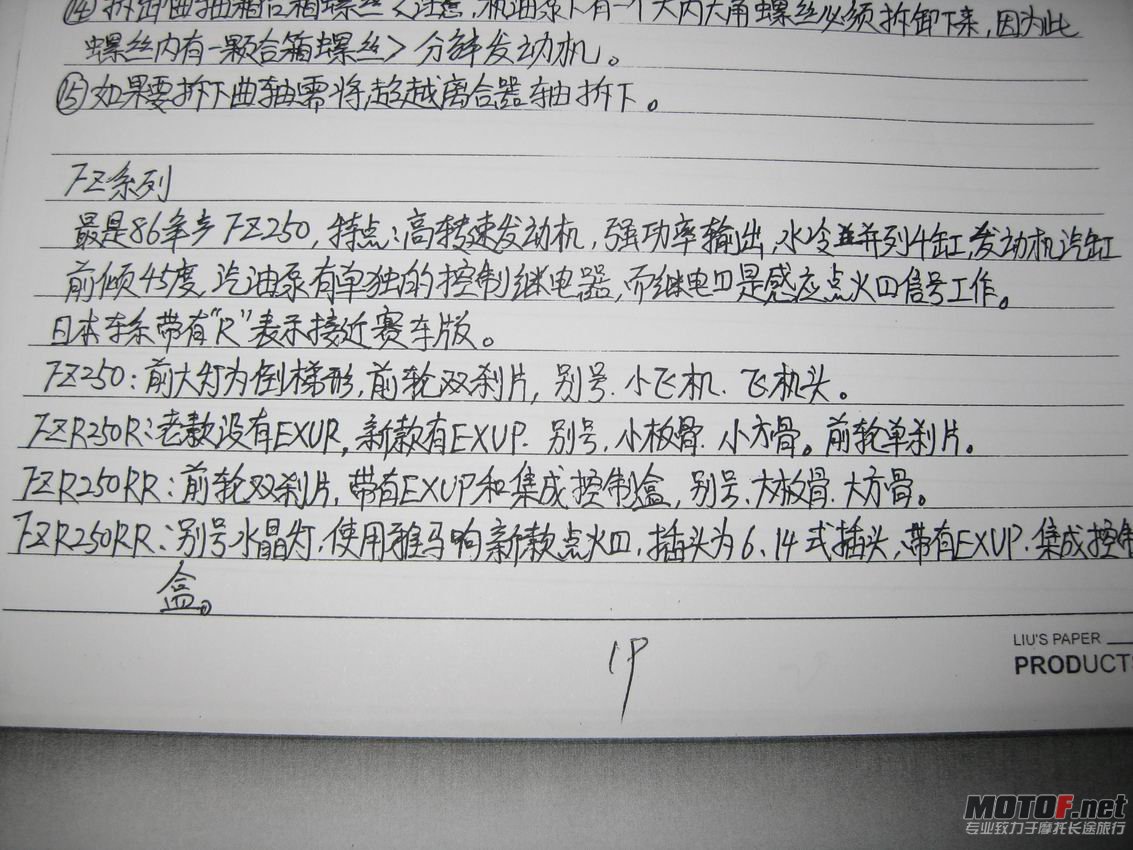 ⑭拆卸曲轴箱合箱螺丝<注意,机油泵下有一个大内六角螺丝必须拆卸下来,因为此
螺丝内有一颗合箱螺丝>分解发动机。
⑮如果要拆下曲轴需将超越离合器轴拆下。
FZ系列
最是86年产FZ250,特点:高转速发动机,强功率输出,水冷并列4缸,发动机汽缸
前倾45度,汽油泵有单独的控制继电器,而继电四是感应点火四信号工作。
日本车系带有"R"表示接近赛车版。
FZ250:前大灯为倒梯形,前轮双刹片,别号.小飞机.飞机头。
FZR250R:老款没有EXUP,新款有EXUP.别号,小板骨.小方骨。前轮单刹片。
FZR250RR:前轮双刹片,带有EXUP和集成控制盒,别号、大板骨.大方骨。
FZR250RR:别号水晶灯,使用雅马哈新款点火四,插头为6、14式插头,带有EXUP.集成控制
盒。
19
LIU'S PAPER
PRODUCT
MOTOF.net
专业致力于摩托长途旅行